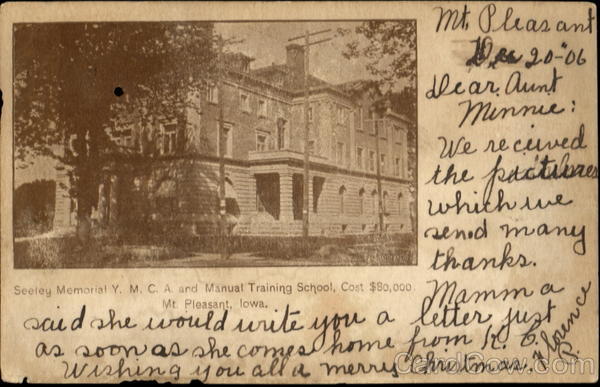 Mt. Pleasant
Dec 20-"06
Dear Aunt
Minnie:
We received
the pictures
which we
send many
thanks.
Mamma
said she would write you a letter just
as soon as she comes home from K. C.
Wishing you all a merry Christmas.
Florence
Seeley Memorial Y. M. C. A. and Manual Training School, Cost $80,000
Mt. Pleasant, Iowa.
CardCow.com